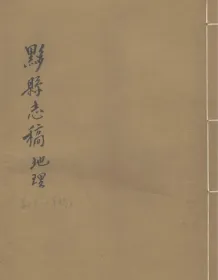 黟縣志稿地理